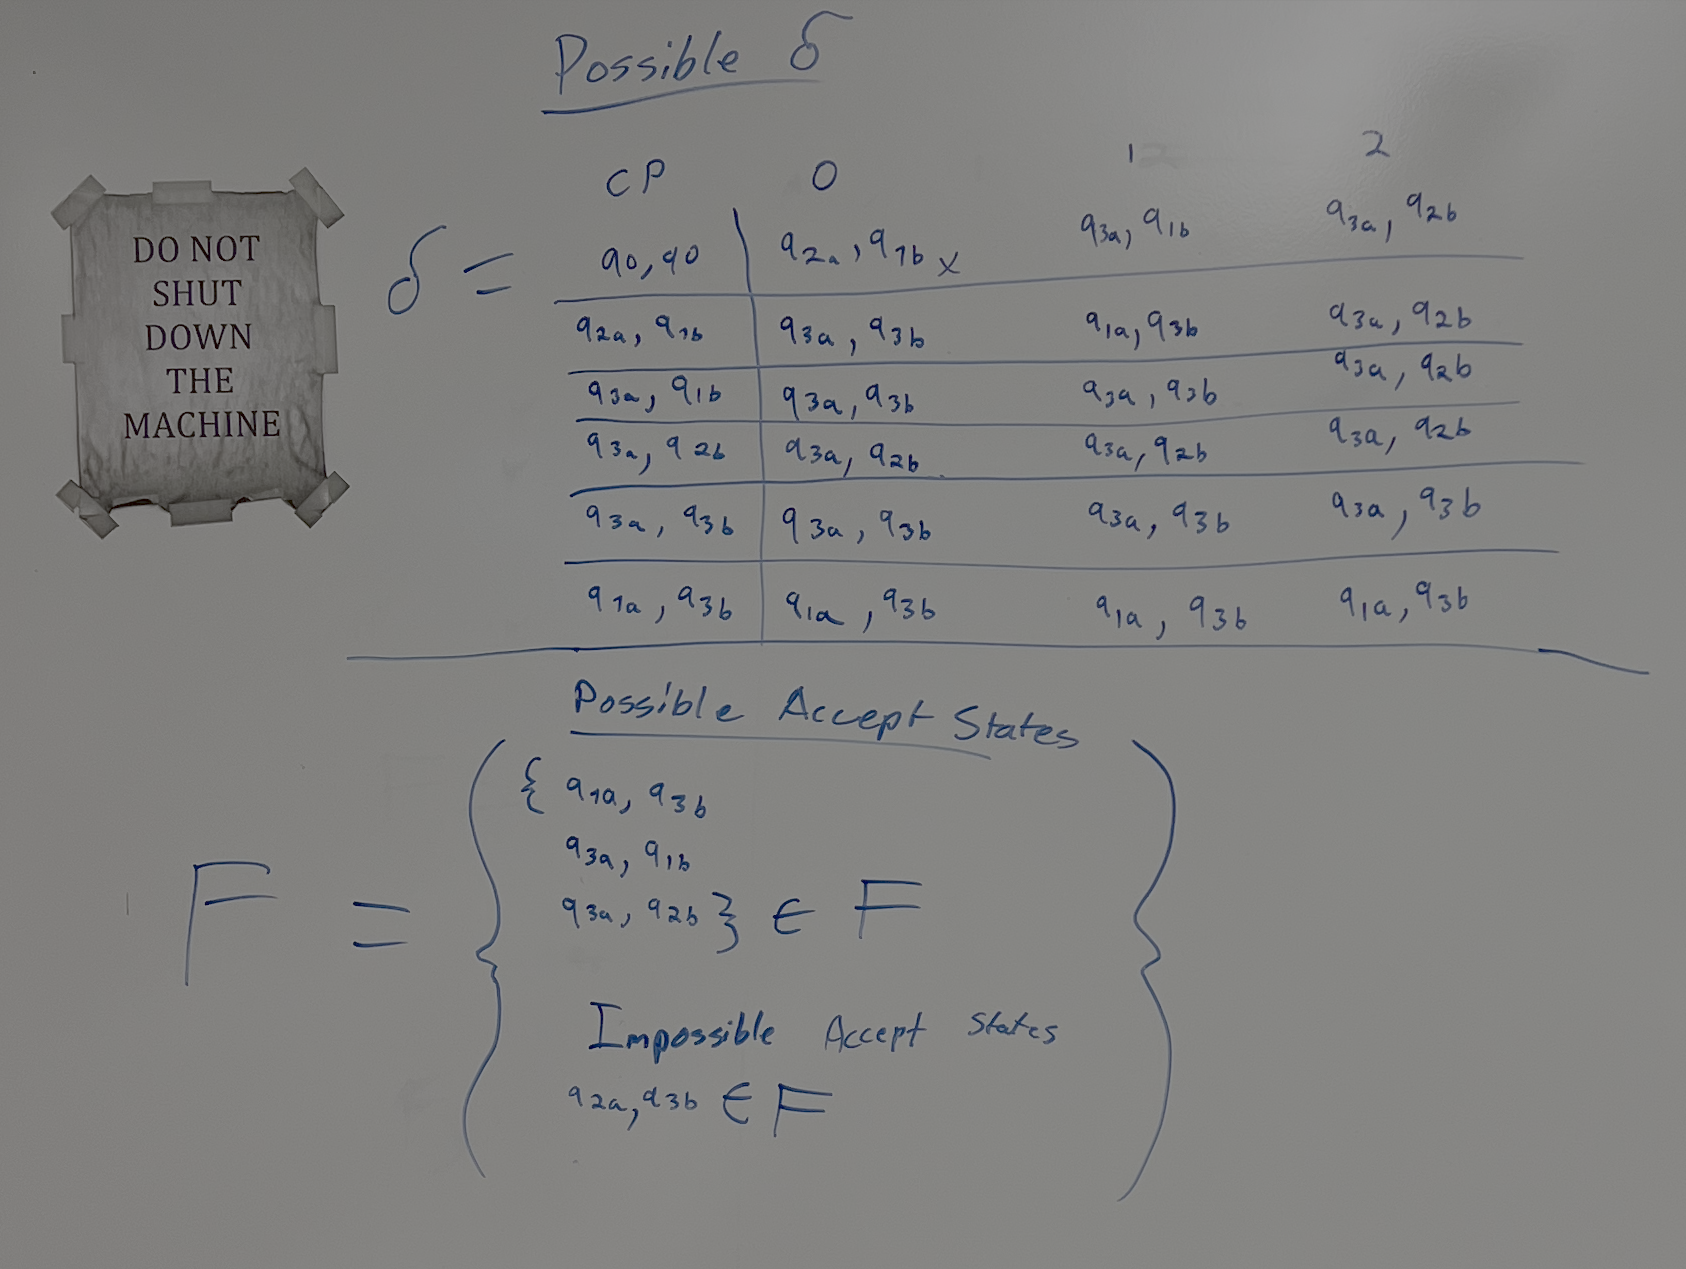 Possible δ
DO NOT
SHUT
DOWN
THE
MACHINE
CP 0 1 2
δ = q0, q0 q2a, q1b x q3a, q1b q3a, q2b
q2a, q1b q3a, q3b q1a, q3b q3a, q2b
q3a, q1b q3a, q3b q3a, q3b q3a, q2b
q3a, q2b q3a, q2b q3a, q2b q3a, q2b
q3a, q3b q3a, q3b q3a, q3b q3a, q3b
q1a, q3b q1a, q3b q1a, q3b q1a, q3b
Possible Accept States
F = { { q1a, q3b
q3a, q1b
q3a, q2b } ∈ F
Impossible Accept States
q2a, q3b ∈ F }